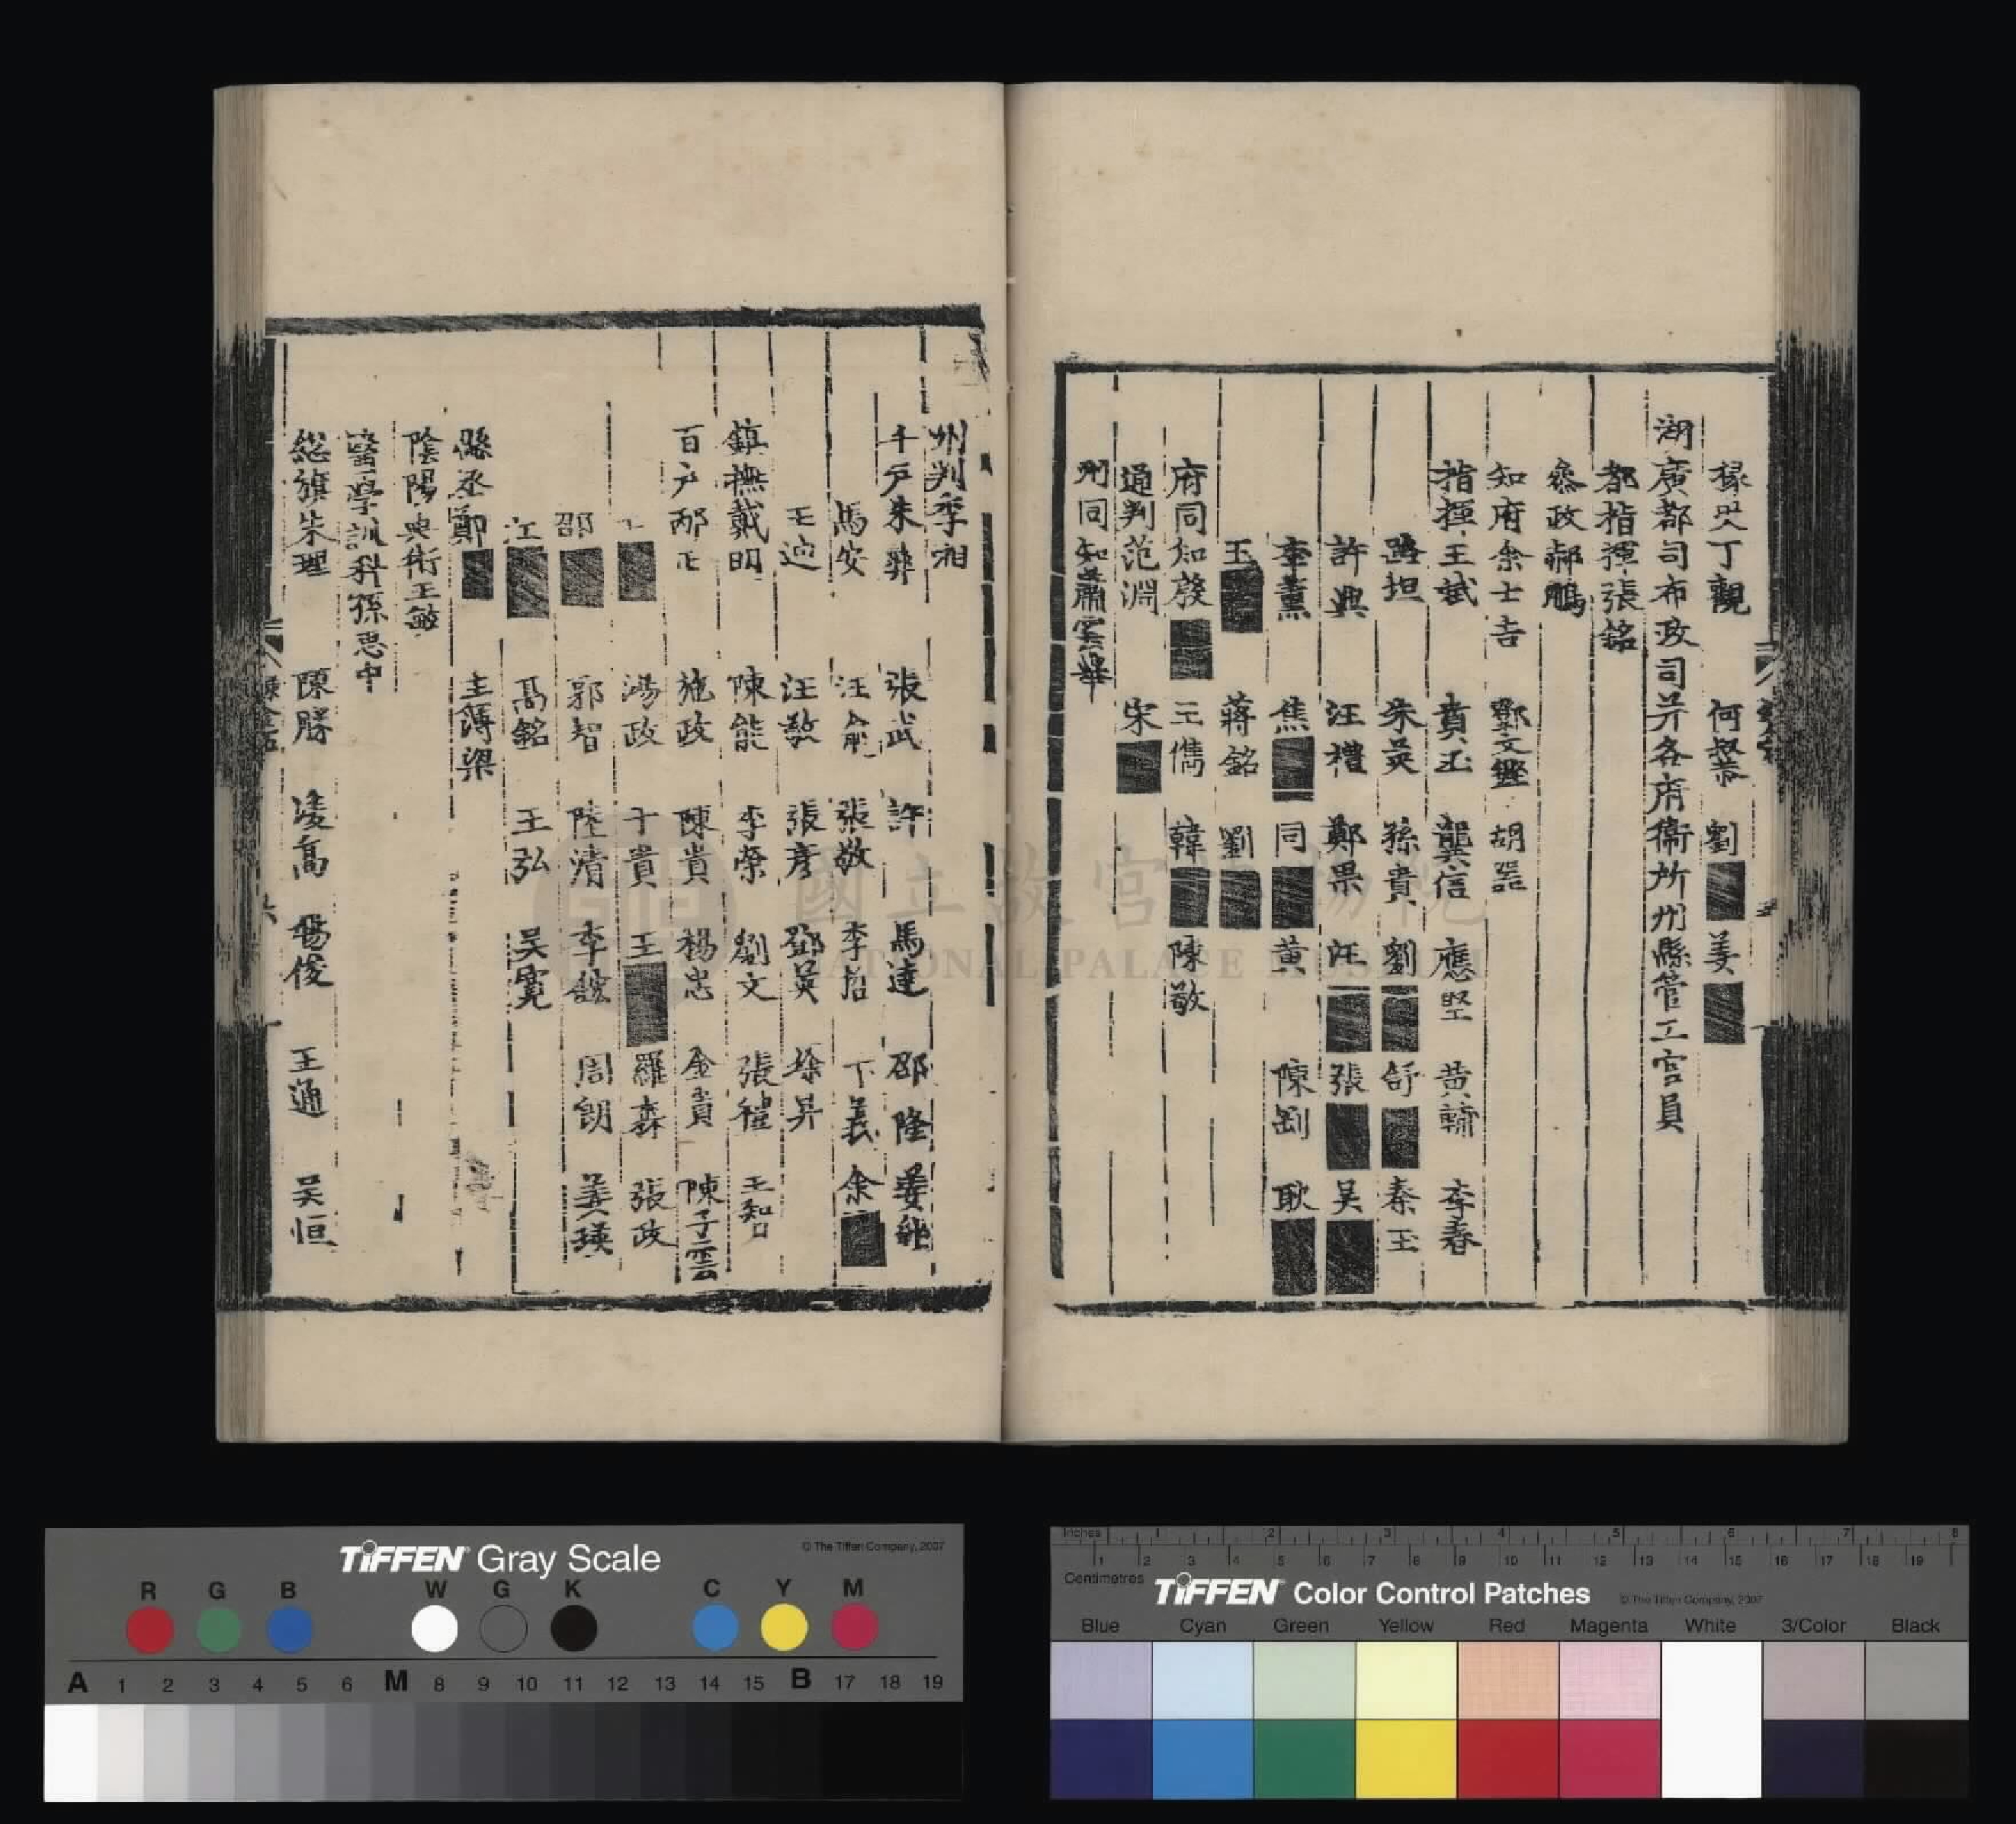 掾史丁觀 何叔恭 劉■ 姜■
湖廣都司布政司并各府衛所州縣管工官員
都指揮張銘
叅政郝鵬
知府余士吉 鄭文 胡器
指揮王斌 賁玉 龔信 應堅 黄輔 李春
路坦 朱英 孫貴 劉■ 舒■ 秦玉
許興 汪禮 鄭果 汪■ 張■ 吴■
李薰 焦■ 同■ 黄 陳劉 耿■
王■ 蔣銘 劉■
府同知殷■ 王儁 韓■ 陳敬
通判范淵 宋■
州同知蕭雲華
州判季相
千戸朱 張武 許 馬達 邵隆 姜能
馬安 汪俞 張敬 李 卞義 余■
王迪 汪敬 張彦 鄧英 徐昇
鎮撫戴明 陳能 李榮 劉文 張禮 王智
百戸邴正 施政 陳貴 楊忠 金貴 陳子雲
■ 湯政 于貴 王■ 羅森 張政
邵■ 郭智 陸清 李 周朗 姜瑛
江■ 髙銘 王弘 吴寛
縣丞鄭■ 主簿梁
陰陽典術王敏
醫學訓科孫思中
総旗朱理 陳勝 凌髙 楊俊 王通 吴恒
六
國立故宮博物院
NATIONAL PALACE MUSEUM
TIFFEN Gray Scale
© The Tiffen Company, 2007
R G B W G K C Y M
A 1 2 3 4 5 6 M 8 9 10 11 12 13 14 15 B 17 18 19
Inches 1 2 3 4 5 6 7 8
1 2 3 4 5 6 7 8 9 10 11 12 13 14 15 16 17 18 19
Centimetres
TIFFEN Color Control Patches
© The Tiffen Company, 2007
Blue Cyan Green Yellow Red Magenta White 3/Color Black